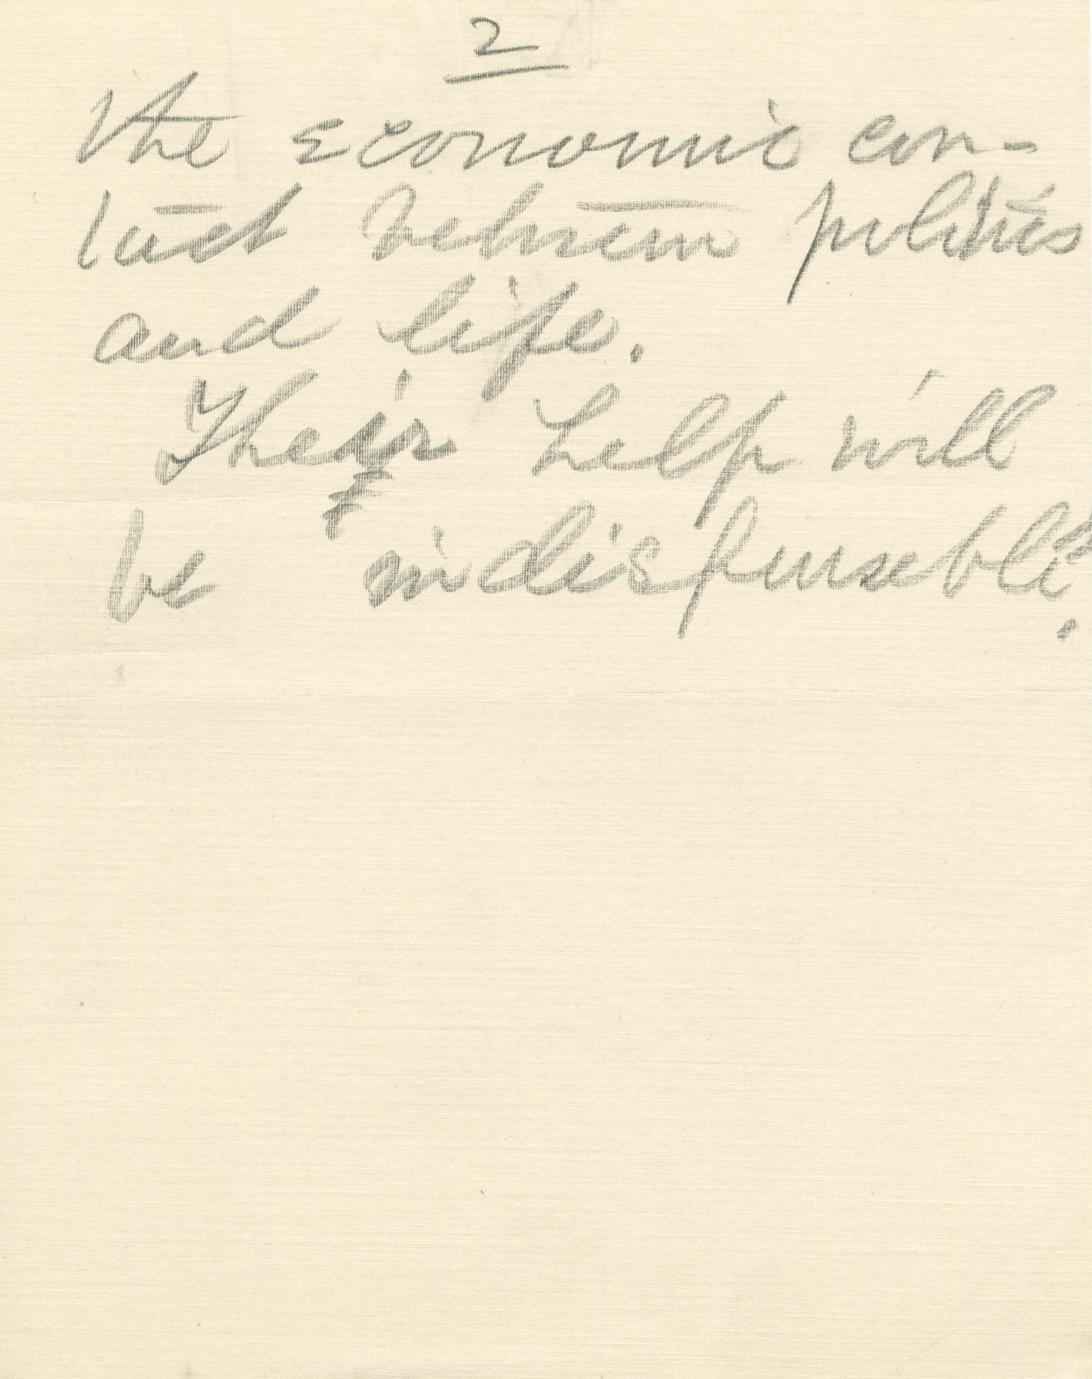 2
the economic con-
tact between politics
and life.
Their help will
be indispensable.